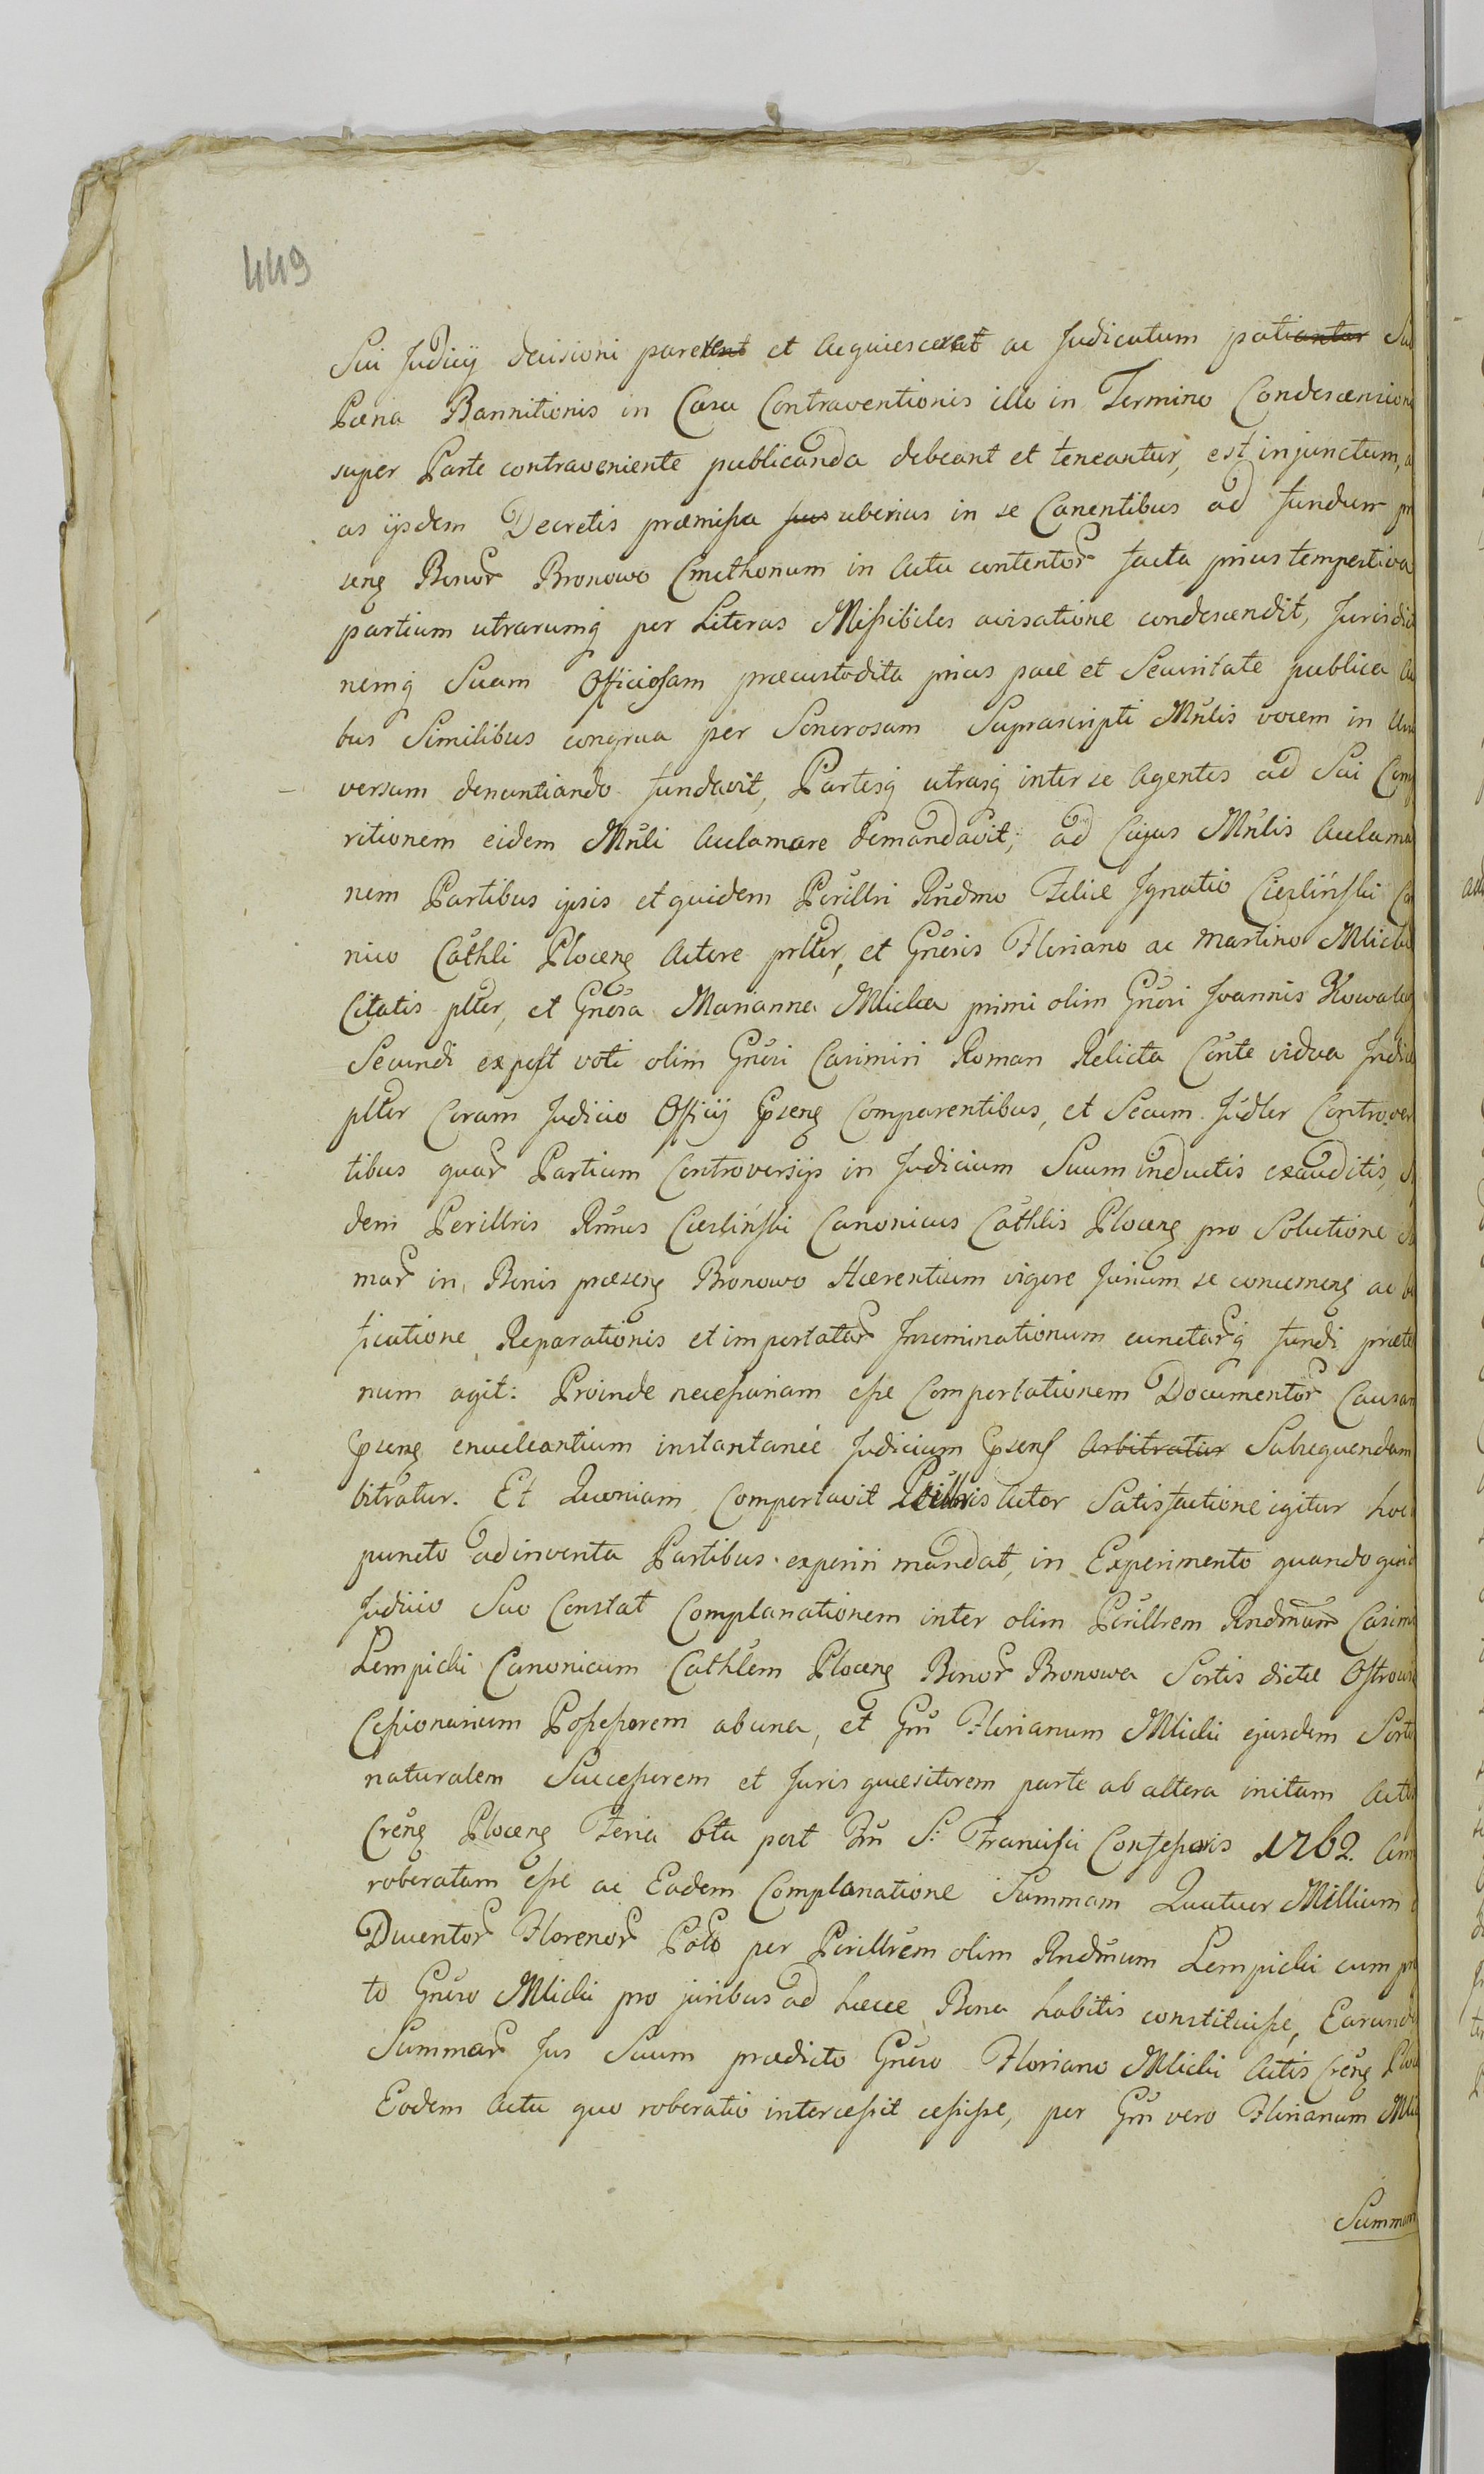 449
Sui Judicij decisioni parerent et acquiescerat ac Judicatum patiantur Sub
Pæna Bannitionis in Casu Contraventionis illo in Termino Condescensione
super Parte contraveniente publicanda debeant et teneantur, est injunctum,
as ijsdem Decretis præmissa jus uberius in se Canentibus ad fundum
seng Bonor Bronowo Cmethonum in Actu contentor facta prius tempestiva
partium utrarumq per Literas Missibiles avisatione condescendit, Jurisdic
nemq Suam Officiosam præcustodita prius pace et Securitate publica
bus Similibus congrua per Sonorosam Suprascripti Mnlis vocem in
versum denuntiando fundavit, Partesq utrasq inter se Agentes ad Sui
ritionem eidem Mnli Acclamare Demandavit, ad Cujus Mnlis Acclama
nem Partibus ipsis et quidem Perillri Rndmo Felice Ignatio Cieslinski
nico Cathli Ploceng Actore prlter, et Gnosis Floriano ac Martino Mlicki
Citatis plter, et Gnosa Marianna Mlicka primi olim Gnosi Joannis Kowale
Secundi expost voti olim Gnosi Casimiri Roman Relicta Cnte vidua Indic
plter Coram Judicio Officij Ipseng Comparentibus, et Secum Judler Controver
tibus quar Partium Controversijs in Judicium Suum inductis exauditis,
dem Perillris Rmus Cieslinski Canonicus Cathlis Ploceng pro Solutione
mar in Bonis præseng Bronowo Hærentium vigore Jurium se concerneng ac
ficatione Reparationis et importatar Inseminationum cunctarq fundi præte
num agit: Proinde necessariam esse Comportationem Documentor Causam
Ipseng enucleantium instantanee Judicium Ipseng Arbitratur Subsequendam
bitratur. Et Quoniam Comportavit Perillris Actor Satisfactione igitur hoc
puncto adinventa Partibus experiri mandat, in Experimento quandoquid
Judicio Suo Constat Complanationem inter olim Perillrem Rndmum Casimi
Lempicki Canonicum Cathlem Ploceng Bonor Bronowa Sortis dictæ
Cessionarium Possessorem ab una, et Gm Florianum Mlicki ejusdem Sortis
naturalem Successorem et Juris quæsitorem parte ab altera initam Actis
Creng Ploceng Feria 6ta post Fm S: Francisci Confessoris 1762.
roboratam esse ac Eadem Complanatione Summam Quatuor Millium
Ducentor Florenor Polo per Perillrem olim Rndmum Lempicki cum
to Gnoso Mlicki pro juribus ad hæcce Bona habitis constituisse, Earund
Summar Jus Suum prædicto Gnoso Floriano Mlicki Actis Creng
Eodem Actu quo roboratio intercessit cessisse, per Gm vero Florianum
Summam